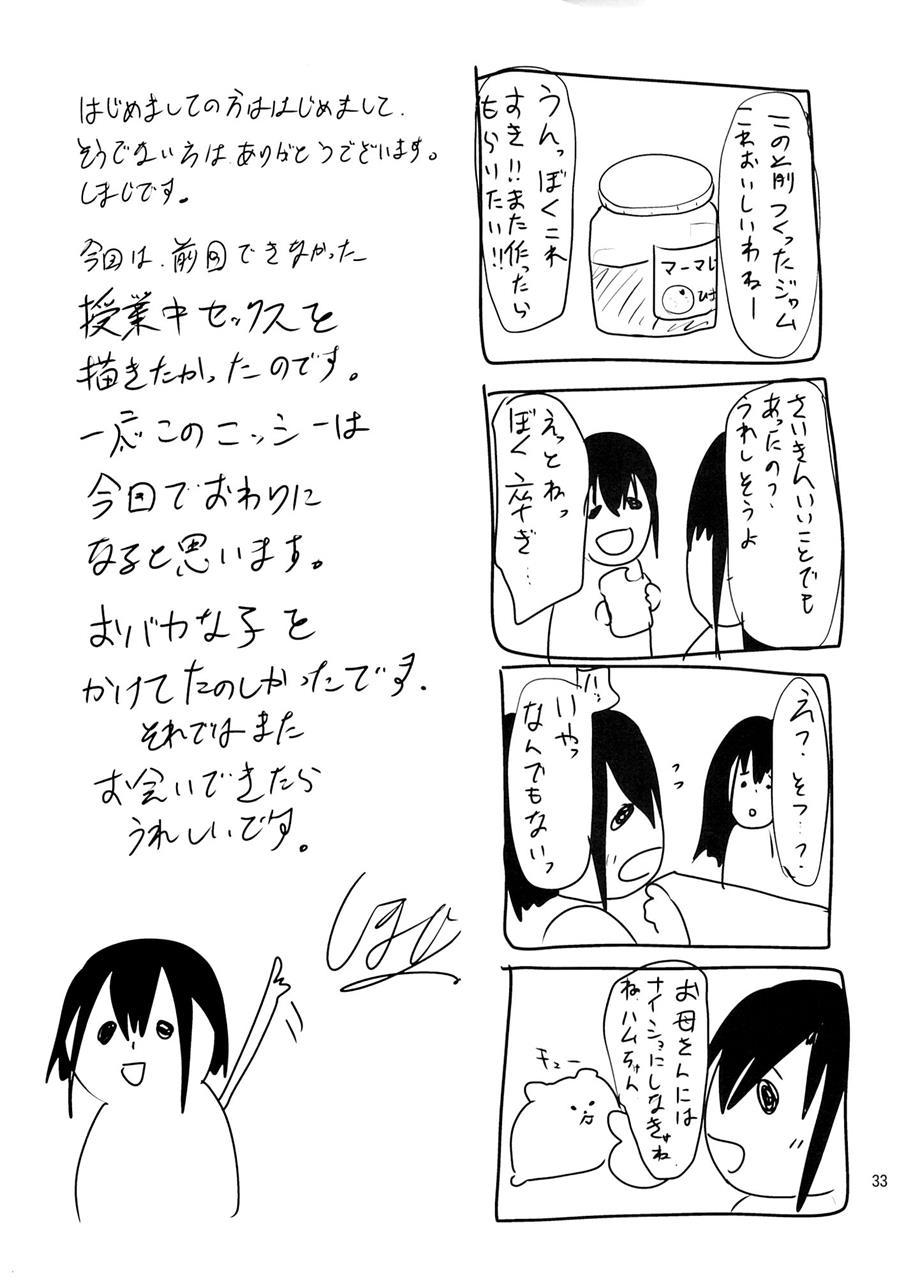 はじめましての方ははじめまして、
そうでない方は、ありがとうございます。
しまじです。
今回は、前回できなかった
授業中セックスを
描きたかったのです。
一応このニッシーは
今回でおわりに
なると思います。
おバカな子を
かけてたのしかったです。
それではまた
お会いできたら
うれしいです。
この前つくったジャム
これおいしいわねー
うんっぼくこれ
すき!!また作ったら
もらいたい!!
マーマレ
さいきんいいことでも
あったの?
うれしそうよ
えっとねっ
ぼく 卒ぎ…
えっ?そつ…?
いやっ
なんでもないっ
お母さんには
ナイショにしなきゃね
ね、ハムちゃん
キュー
33